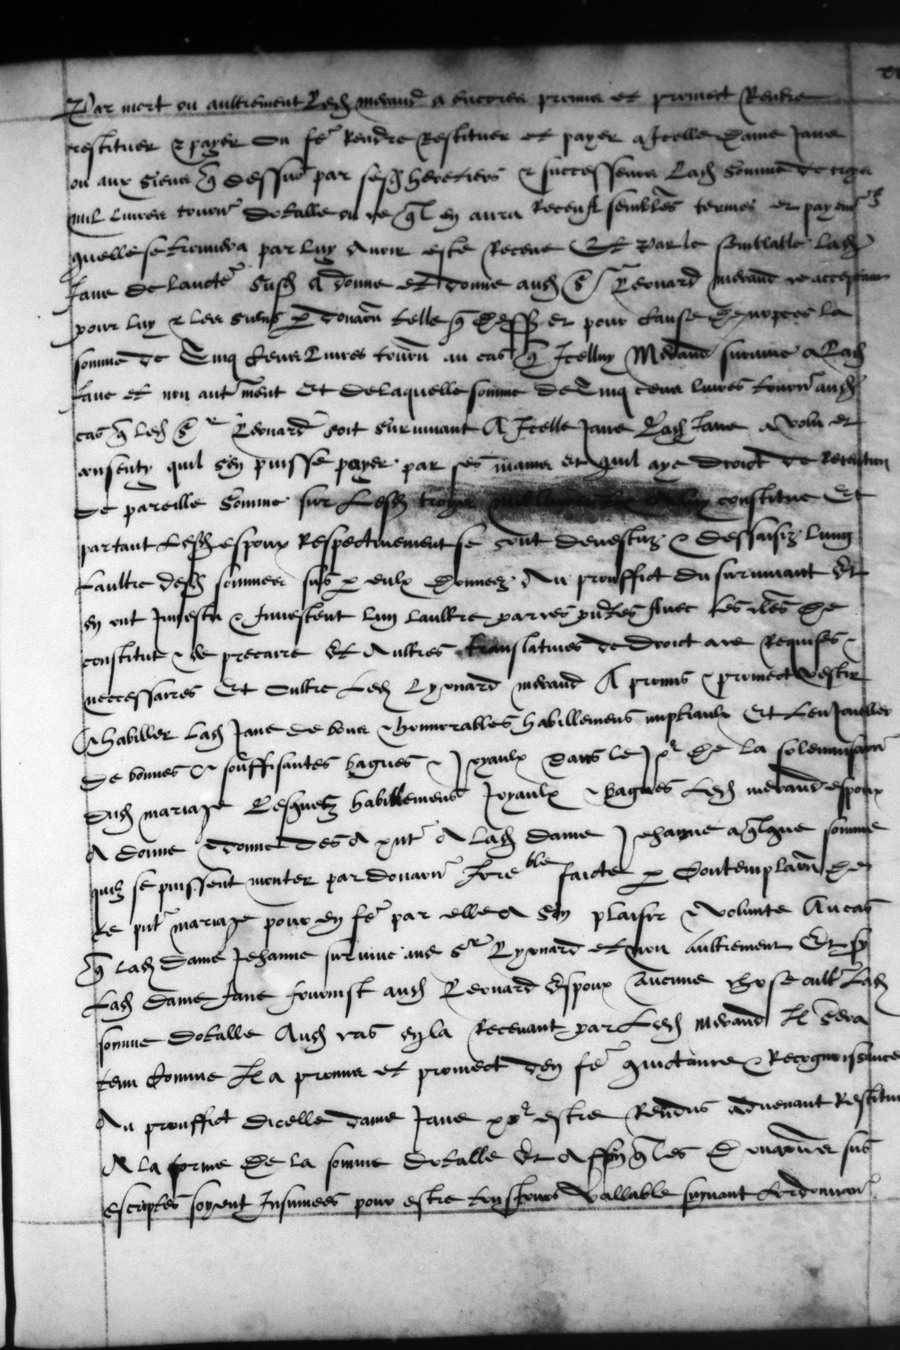 Par mort ou aultrement Led meraud a encores promis et promect Rendre
restituer & payer ou fe Rendre Restituer et payer a Icelle dame Jane
ou aux siens q dessus par sesd heretiers & successeurs Lad somme de
mil Livres tourn dotalle ou ce ql en aura Receu semblables termes et payem
quelle se trouvera par luy avoir este Receue Et Par le semblable lad
Jane de laucte susd A donne et donne aud Sr Leonard meraud ce acceptant
pour luy & les siens p douaire telle q dessus et pour cause de nopces la
somme de Cinq Cens Livres tourn au cas q Icelluy Meraud survive a Lad
Jane et non autrment Et de laquelle somme de Cinq cens livres tourn aud
cas q led Sr Leonard soit survivant A Icelle Jane Lad Jane a volu et
consenty quil sen puisse payer par ses mains et quil aye droict de Retention
de pareille Somme sur Lesd constitue Et
partant Lesd espoux Respectivement se sont devestuz & dessaisiz lung
Laultre desd sommes sus p eulx donnees Au prouffict du survivant Et
en ont Investu & Investent lun laultre par ces pntes avec les cles de
constitut & de precaire et Aultres translatives de droict ace Requises &
neccessaires Et Oultre Led Lyonard meraud A promis & promect vestir
& habiller Lad Jane de bons & honnorables habillemens nuptiaulx Et Len Joualler
de bonnes & souffisantes bagues & Joyaulx dans le Jor de la solemnisation
dud mariage Lesquelz habillemens Joyaulx & bagues Led meraud espoux
A donne & donne des A pnt A Lad dame Jehanne a qlque somme
quilz se puissent monter par douaire Irreble faicte p Contemplaon de
ce pnt mariage pour en fe par elle A son plaisir & volunte Au cas
q Lad dame Jehanne survive aud Sr Lyonard et non Aultrement Et sy
Lad dame Jane fournist aud Leonard Espoux Aucune chose oultre Lad
somme dotalle Aud cas en la Recevant par Led meraud Il sera
tenu Comme Il a promis et promect den fe quictance & Recognoissance
Au prouffict dicelle dame Jane por estre Rendus advenant Restitun
A la forme de la somme dotalle Et Affin q les Donations sus
escriptes soyent Insinuees pour estre tousjours vallable suyvant Lordonnance